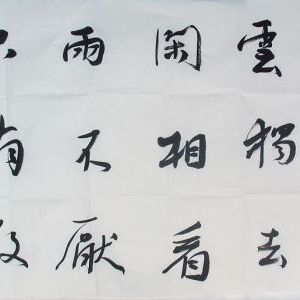 雲獨去
閑相看
兩不厭
有